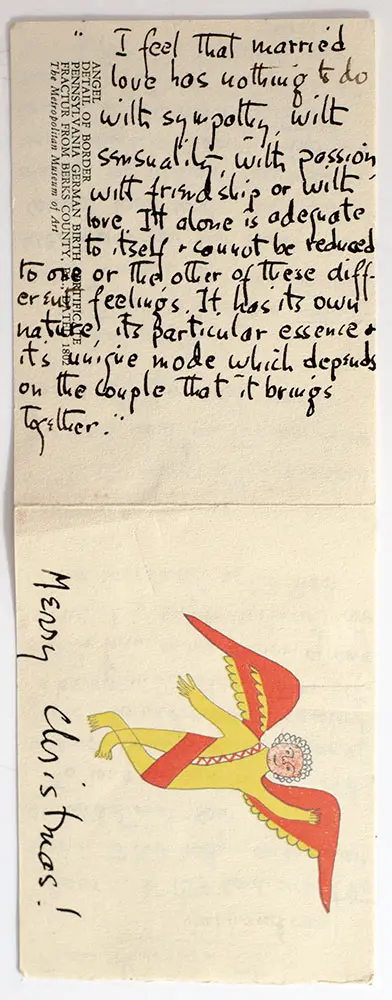 " I feel that married
love has nothing to do
with sympathy, with
sensuality, with passion
with friendship or with
love. It alone is adequate
to itself & cannot be reduced
to one or the other of these diff-
erent feelings. It has its own
nature, its particular essence &
it's unique mode which depends
on the couple that it brings
together."
ANGEL
DETAIL OF BORDER
PENNSYLVANIA GERMAN BIRTH CERTIFICATE
FRACTUR FROM BERKS COUNTY,
The Metropolitan Museum of Art
Merry Christmas!